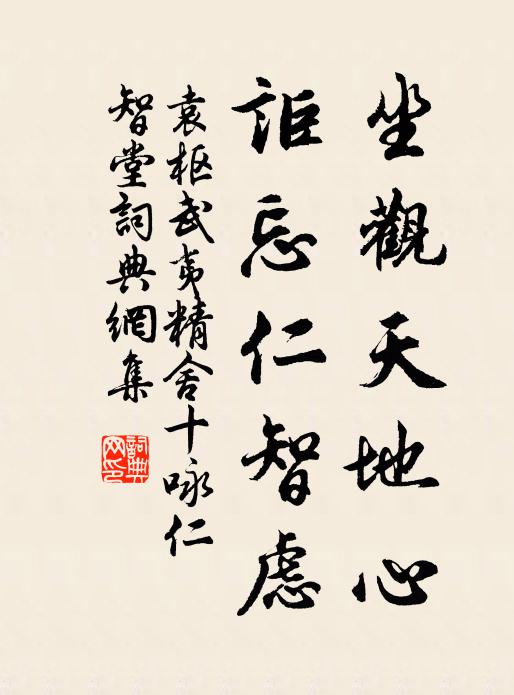 坐觀天地心
詎忘仁智慮
袁枢武夷精舍十咏仁
智堂詞典網集
詞典网印